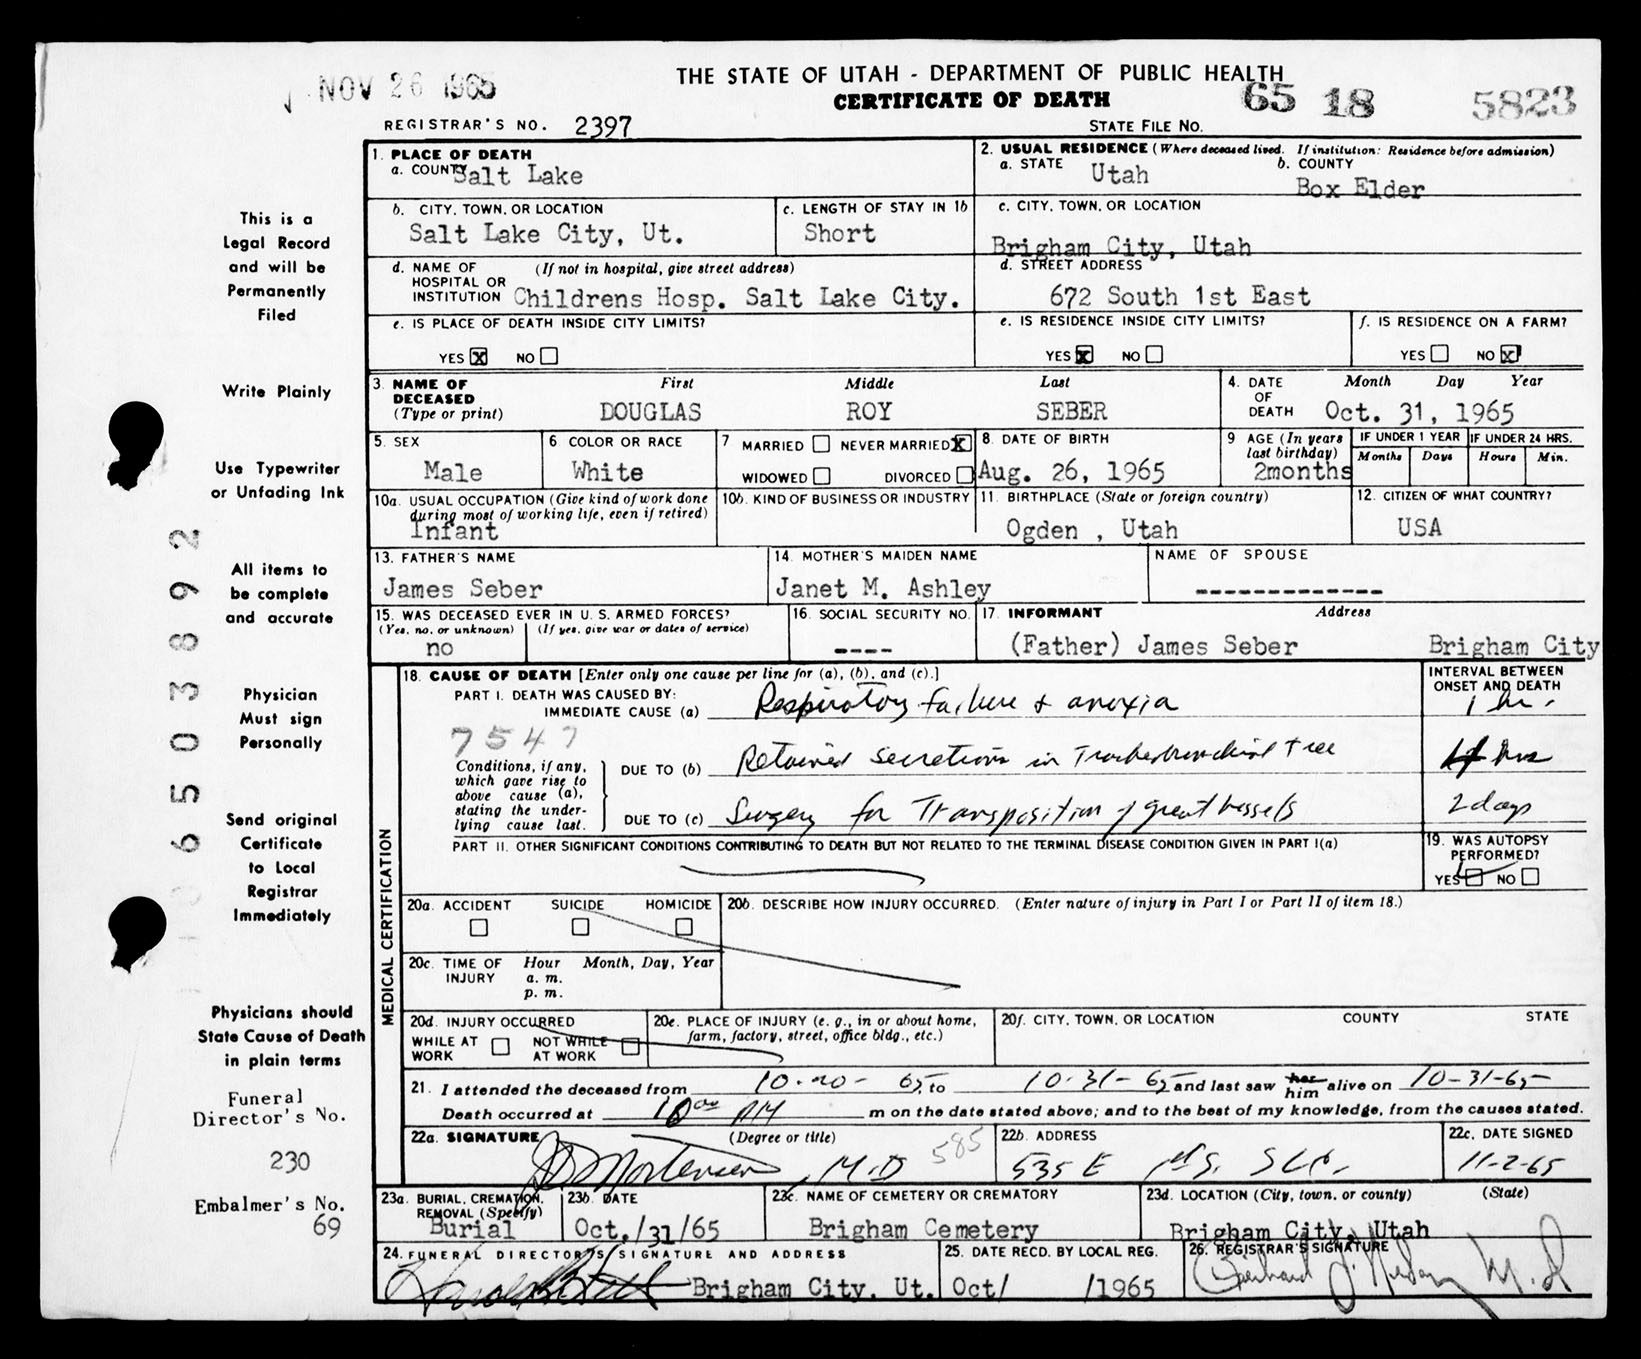 NOV 26 1965
THE STATE OF UTAH - DEPARTMENT OF PUBLIC HEALTH
CERTIFICATE OF DEATH
65 18 5823
REGISTRAR'S NO. 2397
STATE FILE NO.
1. PLACE OF DEATH
a. COUNTY Salt Lake
2. USUAL RESIDENCE (Where deceased lived. If institution: Residence before admission)
a. STATE Utah b. COUNTY Box Elder
b. CITY, TOWN, OR LOCATION Salt Lake City, Ut.
c. LENGTH OF STAY IN 1b Short
c. CITY, TOWN, OR LOCATION Brigham City, Utah
d. NAME OF HOSPITAL OR INSTITUTION (If not in hospital, give street address) Childrens Hosp. Salt Lake City.
d. STREET ADDRESS 672 South 1st East
e. IS PLACE OF DEATH INSIDE CITY LIMITS?
YES X NO
e. IS RESIDENCE INSIDE CITY LIMITS?
YES X NO
f. IS RESIDENCE ON A FARM?
YES NO X
3. NAME OF DECEASED (Type or print)
First Middle Last
DOUGLAS ROY SEBER
4. DATE OF DEATH Month Day Year
Oct. 31, 1965
5. SEX Male
6 COLOR OR RACE White
7 MARRIED NEVER MARRIED X
WIDOWED DIVORCED
8. DATE OF BIRTH Aug. 26, 1965
9 AGE (In years last birthday) 2months
IF UNDER 1 YEAR Months Days
IF UNDER 24 HRS. Hours Min.
10a. USUAL OCCUPATION (Give kind of work done during most of working life, even if retired) Infant
10b. KIND OF BUSINESS OR INDUSTRY
11. BIRTHPLACE (State or foreign country) Ogden , Utah
12. CITIZEN OF WHAT COUNTRY? USA
13. FATHER'S NAME James Seber
14. MOTHER'S MAIDEN NAME Janet M. Ashley
NAME OF SPOUSE -------------
15. WAS DECEASED EVER IN U. S. ARMED FORCES?
(Yes, no, or unknown) (If yes, give war or dates of service)
no
16. SOCIAL SECURITY NO. ----
17. INFORMANT Address
(Father) James Seber Brigham City
MEDICAL CERTIFICATION
18. CAUSE OF DEATH [Enter only one cause per line for (a), (b), and (c).]
INTERVAL BETWEEN ONSET AND DEATH
PART I. DEATH WAS CAUSED BY:
IMMEDIATE CAUSE (a) Respiratory failure & anoxia 1 hr.
7547
Conditions, if any, which gave rise to above cause (a), stating the underlying cause last.
DUE TO (b) Retained secretions in Tracheobronchial tree hrs
DUE TO (c) Surgery for Transposition of great vessels 2 days
PART II. OTHER SIGNIFICANT CONDITIONS CONTRIBUTING TO DEATH BUT NOT RELATED TO THE TERMINAL DISEASE CONDITION GIVEN IN PART I(a)
19. WAS AUTOPSY PERFORMED?
YES NO
20a. ACCIDENT SUICIDE HOMICIDE
20b. DESCRIBE HOW INJURY OCCURRED. (Enter nature of injury in Part I or Part II of item 18.)
20c. TIME OF INJURY Hour Month, Day, Year
a. m.
p. m.
20d. INJURY OCCURRED
WHILE AT WORK NOT WHILE AT WORK
20e. PLACE OF INJURY (e. g., in or about home, farm, factory, street, office bldg., etc.)
20f. CITY, TOWN, OR LOCATION COUNTY STATE
21. I attended the deceased from 10-20-65, to 10-31-65 and last saw her him alive on 10-31-65
Death occurred at 10 00 AM m on the date stated above; and to the best of my knowledge, from the causes stated.
22a. SIGNATURE (Degree or title) Mortensen, M.D 585
22b. ADDRESS 535 E
22c. DATE SIGNED 11-2-65
23a. BURIAL, CREMATION, REMOVAL (Specify) Burial
23b. DATE Oct./31/65
23c. NAME OF CEMETERY OR CREMATORY Brigham Cemetery
23d. LOCATION (City, town, or county) (State)
Brigham City, Utah
24. FUNERAL DIRECTOR'S SIGNATURE AND ADDRESS
Brigham City. Ut.
25. DATE RECD. BY LOCAL REG. Oct/ /1965
26. REGISTRAR'S SIGNATURE
M.D
This is a
Legal Record
and will be
Permanently
Filed
Write Plainly
Use Typewriter
or Unfading Ink
All items to
be complete
and accurate
Physician
Must sign
Personally
Send original
Certificate
to Local
Registrar
Immediately
Physicians should
State Cause of Death
in plain terms
Funeral
Director's No.
230
Embalmer's No.
69
6503892